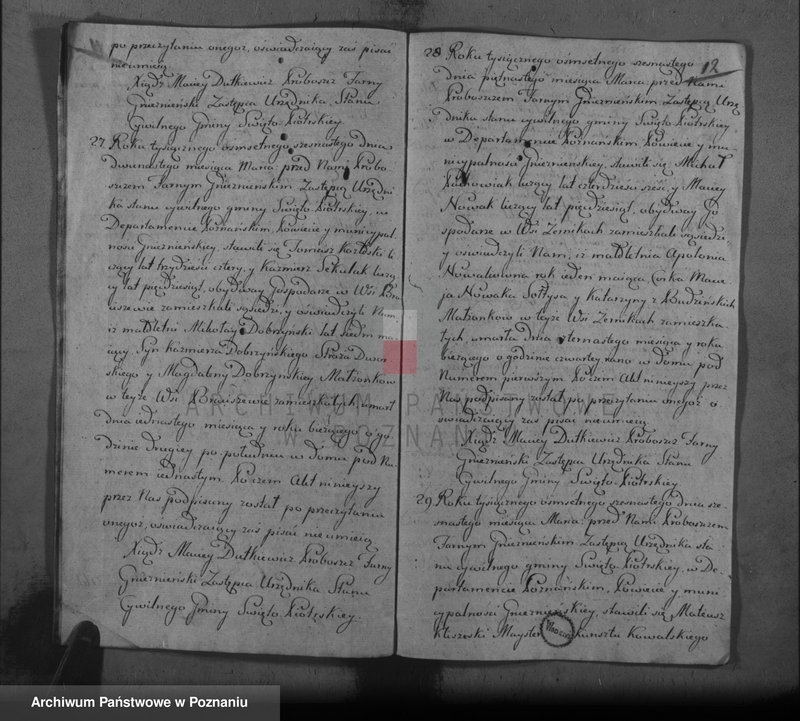 po przeczytaniu onegoż, oświadczaiący zaś pisać
nieumieią
Xiądz Maciey Dutkiewicz Proboszcz Farny
Gnieznieński Zastępca Urzędnika Stanu
Cywilnego Gminy Święto Piotrskiey
27. Roku tysiącznego ośmsetnego szesnastego dnia
Dwunastego miesiąca Marca przed Nami Probo-
szczem Farnym Gnieznieńskim Zastępcą Urzędni-
ka stanu cywilnego gminy Święto Piotrskiey, w
Departamencie Poznańskim, Powiecie y municypal-
ności Gnieznieńskiey, stawili się Tomasz li-
czący lat trzydzieści cztery, y Kazmierz Sekulak liczą-
cy lat pięćdziesiąt, obydway Gospodarze w Wsi
zamieszkali sąsiedzi, y oświadczyli Nam,
iż małoletni Mikołay Dobrzyński lat siedm ma-
iący, Syn Kazmierza Dobrzyńskiego Stróża Dwor-
skiego y Magdaleny Dobrzyńskiey Małżonków
w teyże Wsi Braciszewie zamieszkałych, umarł
dnia iednastego miesiąca y roku bieżącego o go-
dzinie drugiey po południu w domu pod Nu-
merem iednastym. Po czem Akt ninieyszy
przez Nas podpisany został po przeczytaniu
onegoż, oświadczaiący zaś pisać nieumieią
Xiądz Maciey Dutkiewicz Proboszcz Farny
Gnieznieński Zastępca Urzędnika Stanu
Cywilnego Gminy Święto Piotrskiey.
12
28 Roku tysiącznego ośmsetnego szesnastego
dnia piętnastego miesiąca Marca przed Nami
Proboszczem Farnym Gnieznieńskim, Zastępcą Urzę-
dnika stanu cywilnego gminy Święto Piotrskiey
w Departamencie Poznańskim Powiecie y mu-
nicypalności Gnieznieńskiey, stawili się Michał
liczący lat czterdzieści sześć y Maciey
Nowak liczący lat pięćdziesiąt, obydway Go-
spodarze w Wsi Zernikach zamieszkali sąsiedzi
y oświadczyli Nam, iż małoletnia Apolonia
Nowakówna rok ieden maiąca Córka Macie-
ja Nowaka Sołtysa y Katarzyny z Budzińskich
Małżonków w teyże Wsi Zernikach zamieszka-
łych, umarła dnia czternastego miesiąca y roku
bieżącego o godzinie czwartey rano w domu pod
Numerem pierwszym. Po czem Akt ninieyszy przez
Nas podpisany został po przeczytaniu onegoż o-
świadczaiący zaś pisać nieumieią
Xiądz Maciey Dutkiewicz Proboszcz Farny
Gnieznieński Zastępca Urzędnika Stanu
Cywilnego Gminy Święto Piotrskiey
29 Roku tysiącznego ośmsetnego szesnastego dnia sze-
snastego miesiąca Marca przed Nami Proboszczem
Farnym Gnieznieńskim Zastępcą Urzędnika sta-
nu cywilnego gminy Święto Piotrskiey, w De-
partamencie Poznańskim, Powiecie y muni-
cypalności Gnieznieńskiey, stawili się Mateusz
Mayster kunsztu Kowalskiego
ARCHIWUM PAŃSTWOWE
W POZNANIU
Archiwum Państwowe w Poznaniu